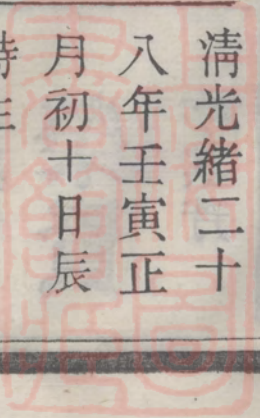 清光緒二十
八年壬寅正
月初十日辰
時生